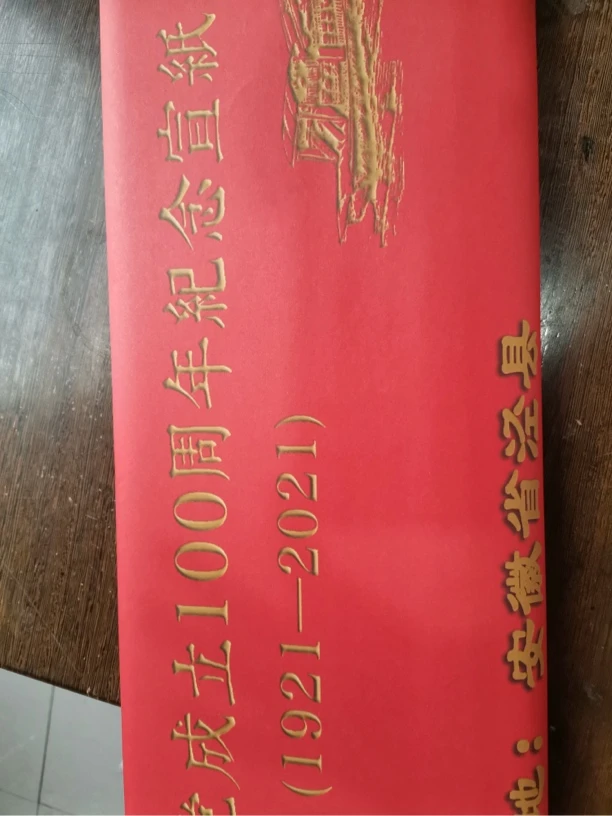 成立100周年紀念宣紙
(1921—2021)
地：安徽省泾县